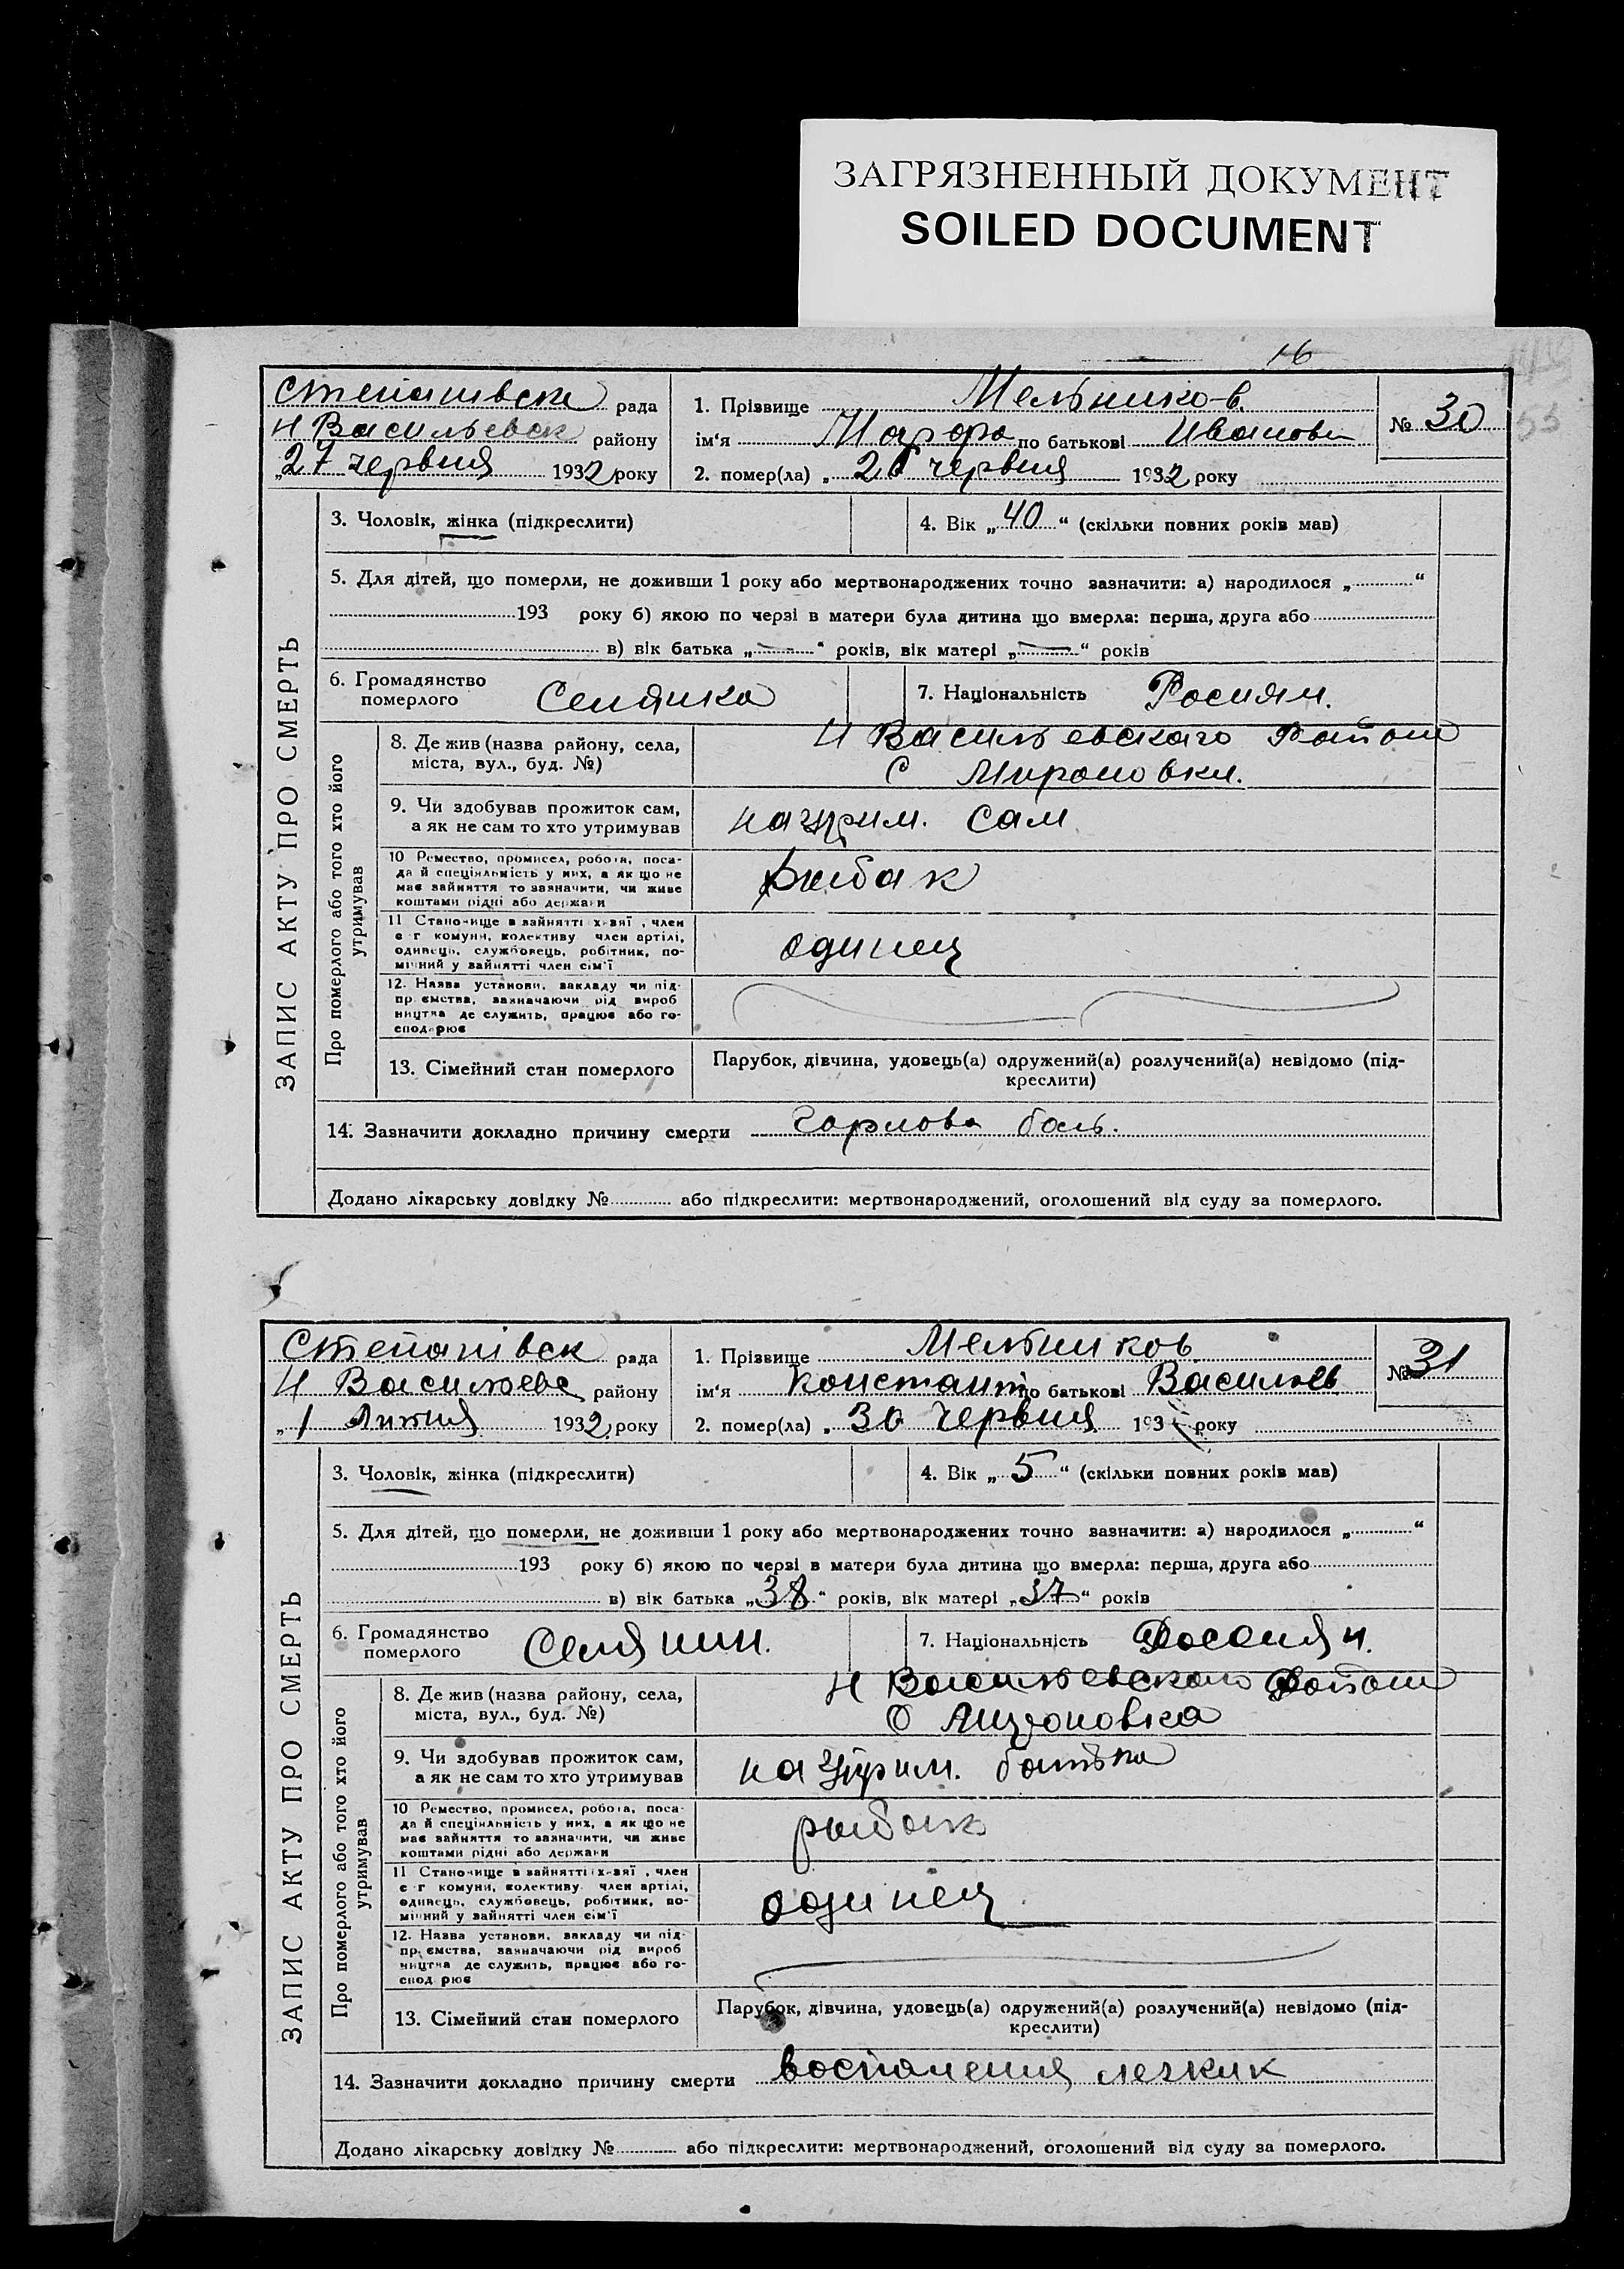 ЗАГРЯЗНЕННЫЙ ДОКУМЕНТ
SOILED DOCUMENT
16
Степанівск рада
Н Васильевск району
„27 червня 1932 року
1. Прізвище Мельников.
ім'я по батькові Иванови
2. помер(ла) „26 червня 1932 року
№ 30
53
ЗАПИС АКТУ ПРО СМЕРТЬ
3. Чоловік, жінка (підкреслити)
4. Вік „40“ (скільки повних років мав)
5. Для дітей, що померли, не доживши 1 року або мертвонароджених точно зазначити: а) народилося „ “
193 року б) якою по черзі в матери була дитина що вмерла: перша, друга або
в) вік батька „—“ років, вік матері „—“ років
6. Громадянство
померлого Селянка
7. Національність Росиян.
Про померлого або того хто його
утримував
8. Де жив (назва району, села,
міста, вул., буд. №)
Н Васильевскаго Района
С Мироновки.
9. Чи здобував прожиток сам,
а як не сам то хто утримував
на утрим. Сам
10 Ремество, промисел, робота, поса-
да й спеціяльність у них, а як що не
має зайняття то зазначити, чи живе
коштами рідні або держави
рыбак
11 Становище в зайнятті х-зяї , член
с г комуни, колективу член артілі,
одинець, службовець, робітник, по-
мічний у зайнятті член сім'ї
одинец
12. Назва установи, закладу чи під-
пр ємства, зазначаючи рід вироб
ництва де служить, працює або го-
сподарює
13. Сімейний стан померлого
Парубок, дівчина, удовець(а) одружений(а) розлучений(а) невідомо (під-
креслити)
14. Зазначити докладно причину смерти Горлова боль.
Додано лікарську довідку № або підкреслити: мертвонароджений, оголошений від суду за померлого.
Степанівск рада
Н Васильеве району
„1 Липня 1932 року
1. Прізвище Мельников
ім'я Константи по батькові Васильев
2. помер(ла) „30 червня 193 року
№ 31
ЗАПИС АКТУ ПРО СМЕРТЬ
3. Чоловік, жінка (підкреслити)
4. Вік „5“ (скільки повних років мав)
5. Для дітей, що померли, не доживши 1 року або мертвонароджених точно зазначити: а) народилося „ “
193 року б) якою по черзі в матери була дитина що вмерла: перша, друга або
в) вік батька „38“ років, вік матері „37“ років
6. Громадянство
померлого Селянин.
7. Національність
Про померлого або того хто його
утримував
8. Де жив (назва району, села,
міста, вул., буд. №)
Н Васильевского Района
9. Чи здобував прожиток сам,
а як не сам то хто утримував
на утрим. батька
10 Ремество, промисел, робота, поса-
да й спеціяльність у них, а як що не
має зайняття то зазначити, чи живе
коштами рідні або держави
рыбак
11 Становище в зайнятті х-зяї , член
с г комуни, колективу член артілі,
одинець, службовець, робітник, по-
мічний у зайнятті член сім'ї
одинец
12. Назва установи, закладу чи під-
пр ємства, зазначаючи рід вироб
ництва де служить, працює або го-
спод рює
13. Сімейний стан померлого
Парубок, дівчина, удовець(а) одружений(а) розлучений(а) невідомо (під-
креслити)
14. Зазначити докладно причину смерти воспаления легких
Додано лікарську довідку № або підкреслити: мертвонароджений, оголошений від суду за померлого.